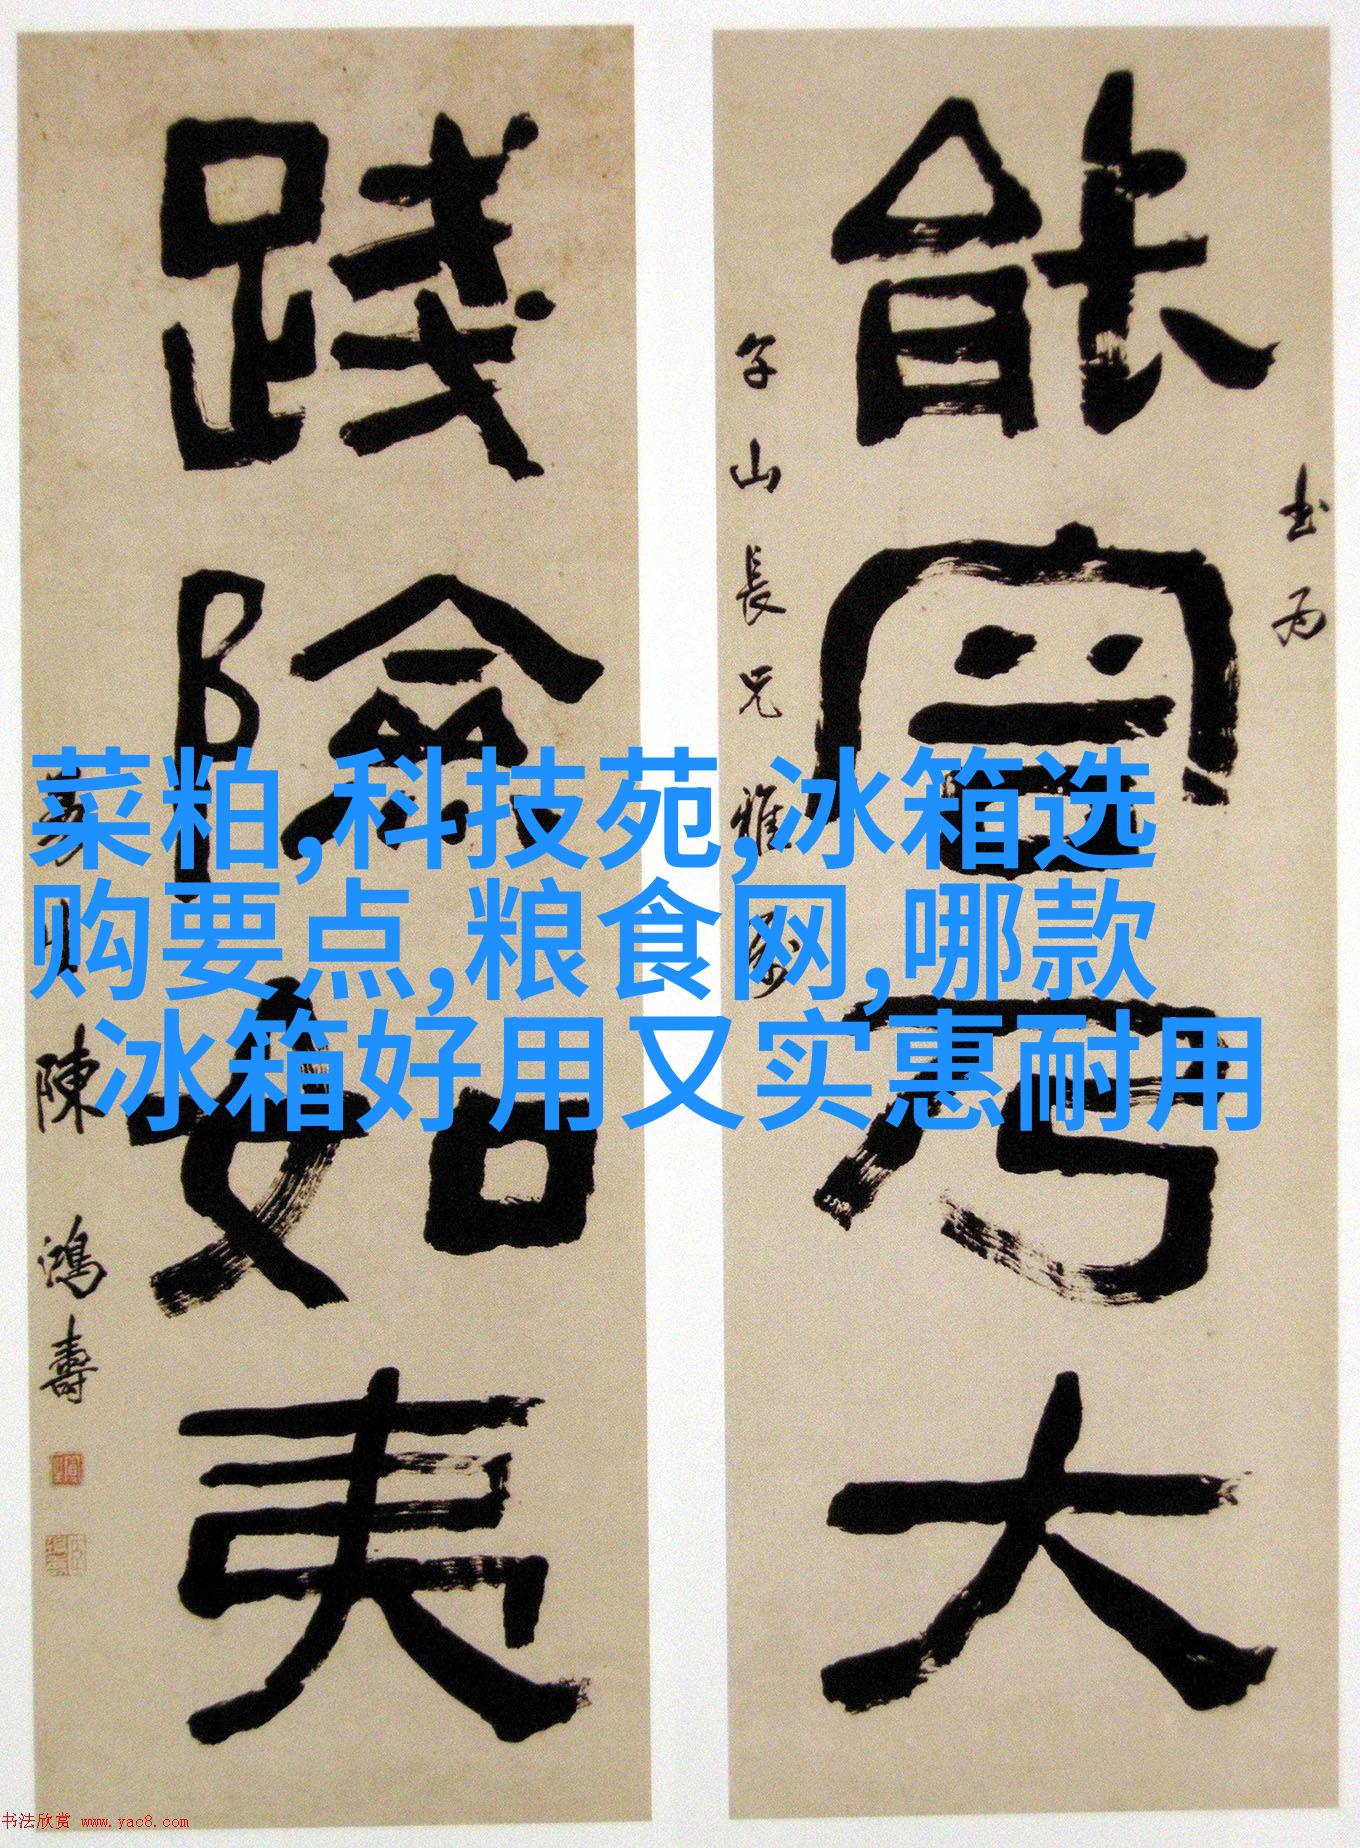 能宦乃大
书为
子山長兄
雅
践險如夷
陳鴻壽
菜粕,科技苑,冰箱选
购要点,粮食网,哪款
冰箱好用又实惠耐用
书法欣赏 www.yac8.com